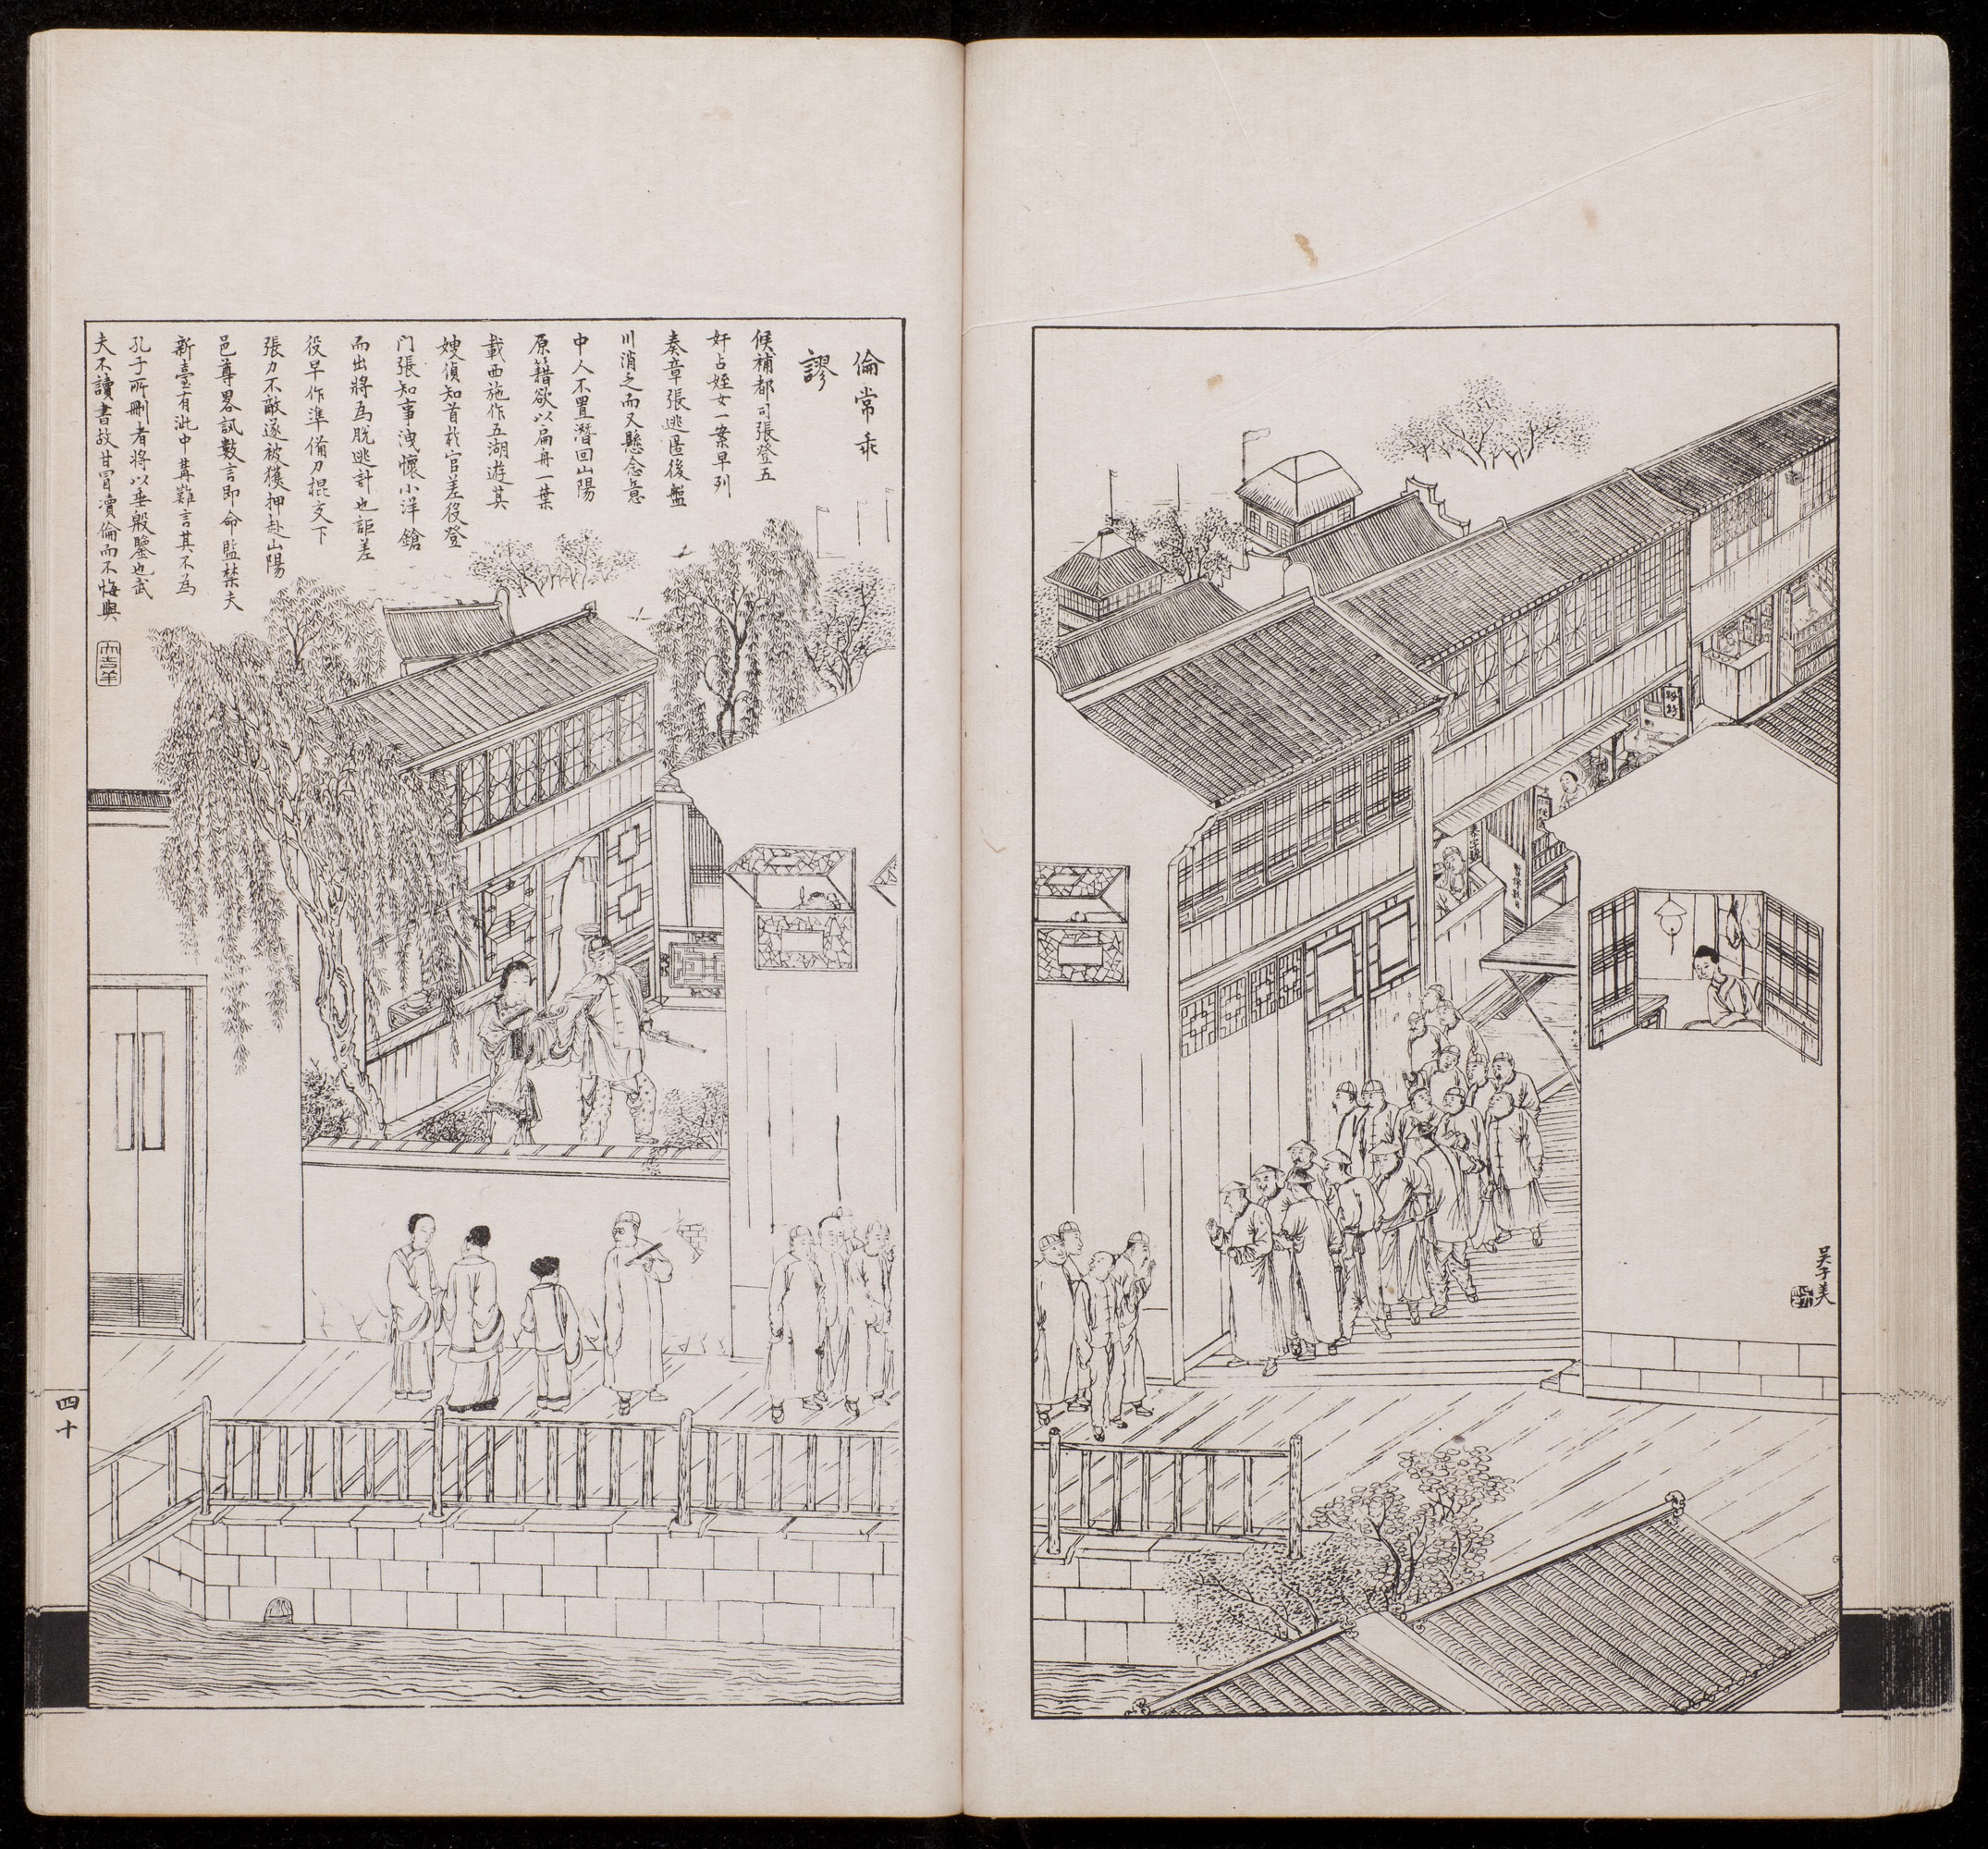 倫常乖
謬
候補都司張登五
奸占姪女一案早列
奏章張逃匿後盤
川消乏而又懸念意
中人不置潛回山陽
原籍欲以扁舟一葉
載西施作五湖遊其
嫂偵知首於官差役登
门張知事洩懷小洋鎗
而出將為脫逃計也詎差
役早作準備刀棍交下
張力不敵遂被獲押赴山陽
邑尊畧訊數言即命監禁夫
新臺有泚中冓難言其不為
孔子所刪者將以垂殷鑒也武
夫不讀書故甘冒瀆倫而不悔與
四十
吳子美